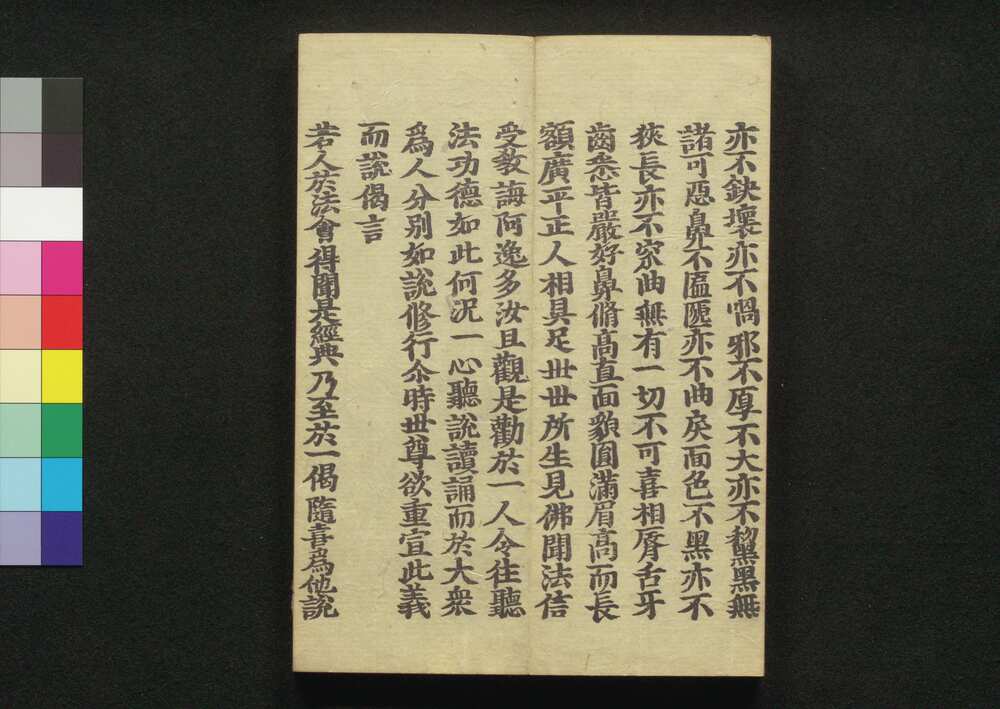 亦不缺壞亦不喎邪不厚不大亦不黧黑無
諸可惡鼻不匾㔸亦不曲戾面色不黑亦不
狹長亦不窊曲無有一切不可喜相脣舌牙
齒悉皆嚴好鼻脩高直面貌圓滿眉高而長
額廣平正人相具足世世所生見佛聞法信
受教誨阿逸多汝且觀是勸於一人令往聽
法功德如此何況一心聽說讀誦而於大衆
爲人分別如說修行尒時世尊欲重宣此義
而說偈言
若人於法會得聞是經典乃至於一偈隨喜爲他說